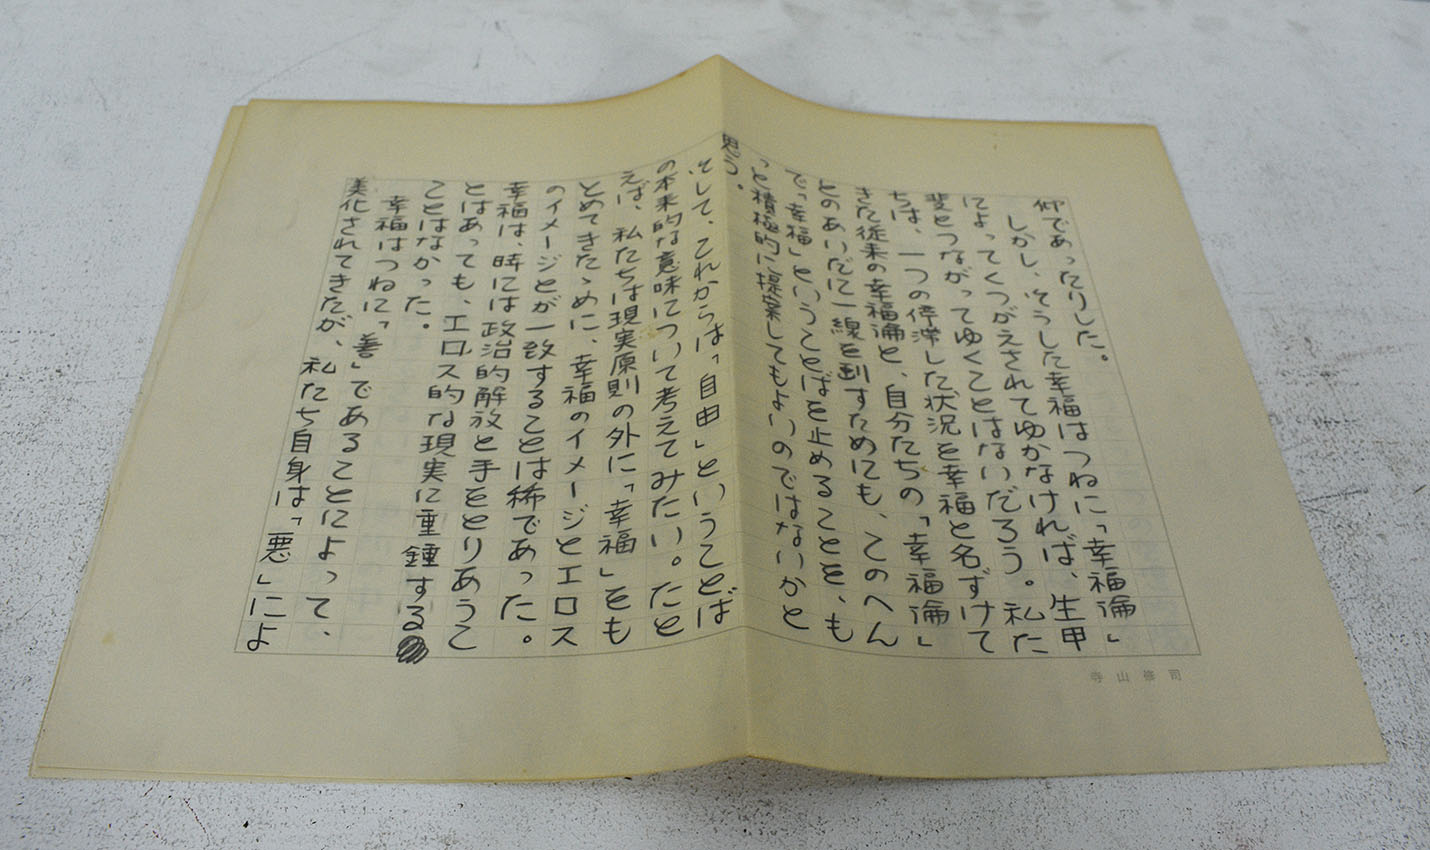 仰であったりした。
しかし、そうした幸福はつねに「幸福論」
によってくつがえされてゆかなければ、生甲
斐とつながってゆくことはないだろう。私た
ちは、一つの停滞した状況を幸福と名ずけて
きた従来の幸福論と、自分たちの「幸福論」
とのあいだに一線を劃すためにも、このへん
で「幸福」ということばを止めることを、も
っと積極的に提案してもよいのではないかと
思う。
そして、これからは「自由」ということば
の本来的な意味について考えてみたい。たと
えば、私たちは現実原則の外に「幸福」をも
とめてきたゝめに、幸福のイメージとエロス
のイメージとが一致することは稀であった。
幸福は、時には政治的解放と手をとりあうこ
とはあっても、エロス的な現実に重鍾する
ことはなかった。
幸福はつねに「善」であることによって、
美化されてきたが、私たち自身は「悪」によ
寺山修司